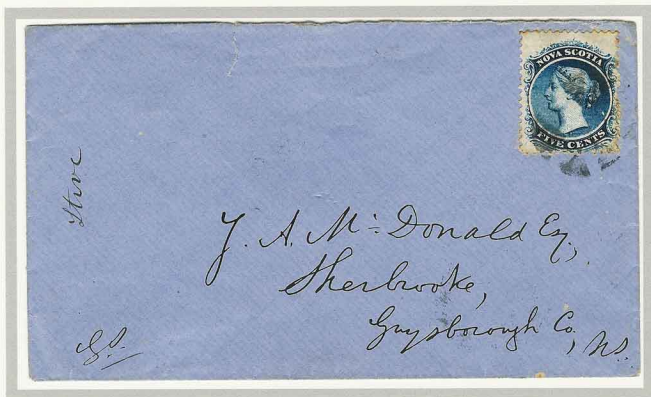 NOVA SCOTIA
FIVE CENTS
J. A. McDonald Esq.,
Sherbrooke,
Guysborough Co,
N.S.